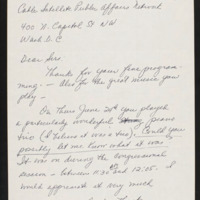 Cable Satellite Public Affairs Network
400 N. Capitol St NW
Wash D.C
Dear Sirs.
Thanks for your fine program-
ming - Also for the great music you
play -
On Thurs June 20th you played
a particularly wonderful piano
trio (I believe it was a trio). Could you
possibly let me know what it was
It was on during the congressional
session - between 11:30 and 12:05. I
would appreciate it very much